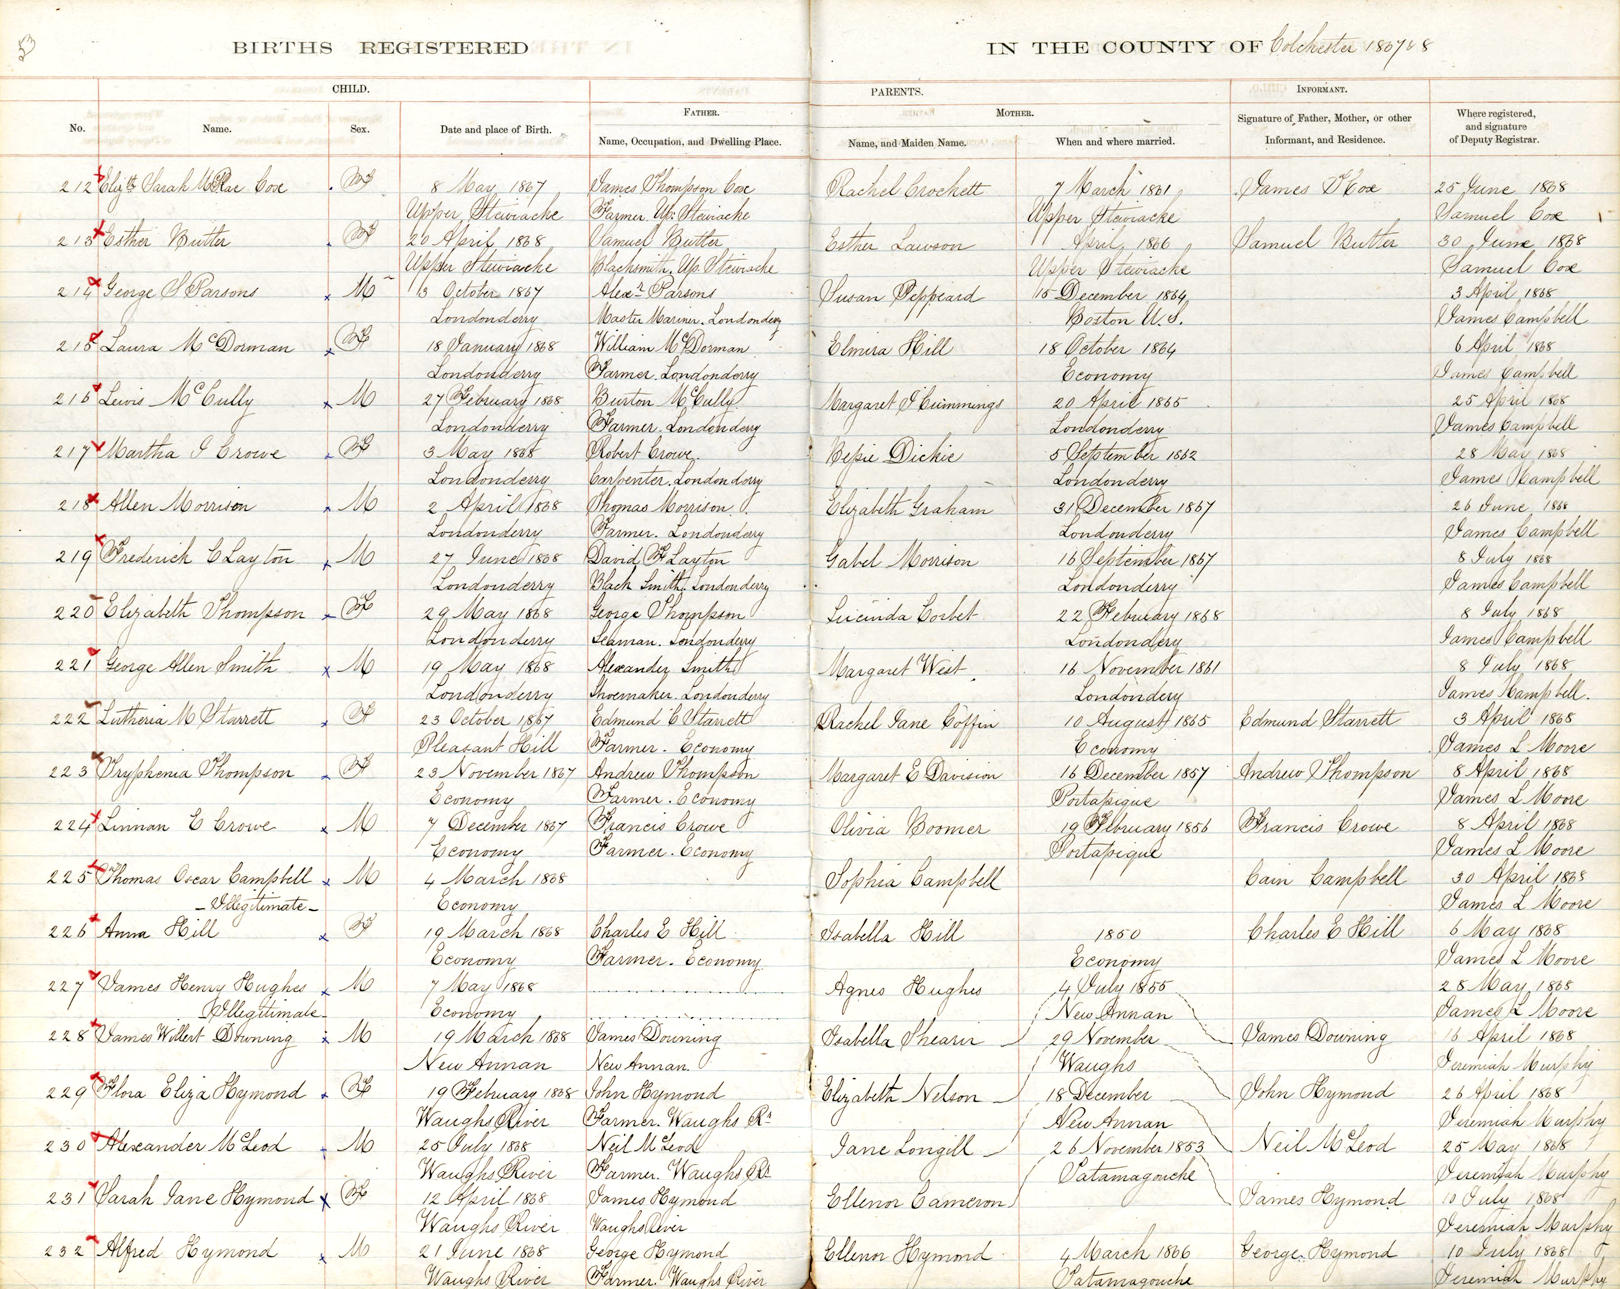 53
BIRTHS REGISTERED
IN THE COUNTY OF Colchester 1867 & 8
CHILD.
PARENTS.
INFORMANT.
FATHER.
MOTHER.
No.
Name.
Sex.
Date and place of Birth.
Name, Occupation, and Dwelling Place.
Name, and Maiden Name.
When and where married.
Signature of Father, Mother, or other
Informant, and Residence.
Where registered,
and signature
of Deputy Registrar.
212 Elizth Sarah McRae Cox F 8 May 1867 James Thompson Cox Rachel Crockett 7 March 1861 James T Cox 25 June 1868
Upper Stewiacke Farmer Up. Stewiacke Upper Stewiacke Samuel Cox
213 Esther Butler F 20 April 1868 Samuel Butler Esther Lawson April 1866 Samuel Butler 30 June 1868
Upper Stewiacke Blacksmith. Up. Stewiacke Upper Stewiacke Samuel Cox
214 George S Parsons M 13 October 1867 Alexr Parsons Susan Peppeard 15 December 1864 3 April 1868
Londonderry Master Mariner. Londonderry Boston U.S. James Campbell
215 Laura McDorman F 18 January 1868 William McDorman Elmira Hill 18 October 1864 6 April 1868
Londonderry Farmer. Londonderry Economy James Campbell
216 Lewis McCully M 27 February 1868 Burton McCully Margaret J Cummings 20 April 1865 25 April 1868
Londonderry Farmer. Londonderry Londonderry James Campbell
217 Martha J Crowe F 3 May 1868 Robert Crowe Bessie Dickie 5 September 1862 28 May 1868
Londonderry Carpenter. Londonderry Londonderry James Campbell
218 Allen Morrison M 2 April 1868 Thomas Morrison Elizabeth Graham 31 December 1867 26 June 1868
Londonderry Farmer. Londonderry Londonderry James Campbell
219 Frederick C Layton M 27 June 1868 David F Layton Isabel Morrison 16 September 1867 8 July 1868
Londonderry Black Smith Londonderry Londonderry James Campbell
220 Elizabeth Thompson F 29 May 1868 George Thompson Lucinda Corbet 22 February 1868 8 July 1868
Londonderry Seaman. Londonderry Londondery James Campbell
221 George Allen Smith M 19 May 1868 Alexander Smith Margaret West 16 November 1861 8 July 1868
Londonderry Shoemaker. Londonderry Londondery James Campbell.
222 Lutheria M Starrett F 23 October 1867 Edmund C Starrett Rachel Jane Coffin 10 August 1865 Edmund Starrett 3 April 1868
Pleasant Hill Farmer. Economy Economy James L Moore
223 Tryphenia Thompson F 23 November 1867 Andrew Thompson Margaret E Davision 16 December 1857 Andrew Thompson 8 April 1868
Economy Farmer. Economy Portapique James L Moore
224 Linnan E Crowe M 7 December 1867 Francis Crowe Olivia Boomer 19 February 1856 Francis Crowe 8 April 1868
Economy Farmer. Economy Portapique James L Moore
225 Thomas Oscar Campbell M 4 March 1868 Sophia Campbell Cain Campbell 30 April 1868
- Illegitimate - Economy James L Moore
226 Anna Hill F 19 March 1868 Charles E Hill Isabella Hill 1850 Charles E Hill 6 May 1868
Economy Farmer. Economy Economy James L Moore
227 James Henry Hughes M 7 May 1868 Agnes Hughes 4 July 1855 28 May 1868
- Illegitimate - Economy New Annan James L Moore
228 James Willert Downing M 19 March 1868 James Downing Isabella Shearir 29 November James Downing 16 April 1868
New Annan New Annan. Waughs Jeremiah Murphy
229 Flora Eliza Hymond F 19 February 1868 John Hymond Elizabeth Nelson 18 December John Hymond 26 April 1868
Waughs River Farmer. Waughs Rr New Annan Jeremiah Murphy
230 Alexander McLeod M 25 July 1868 Neil McLeod Jane Longill 26 November 1853 Neil McLeod 25 May 1868
Waughs River Farmer. Waughs Rr Tatamagouche Jeremiah Murphy
231 Sarah Jane Hymond F 12 April 1868 James Hymond Ellenor Cameron James Hymond 10 July 1868
Waughs River Waughs River Jeremiah Murphy
232 Alfred Hymond M 21 June 1868 George Hymond Ellenor Hymond 4 March 1866 George Hymond 10 July 1868
Waughs River Farmer. Waughs River Tatamagouche Jeremiah Murphy